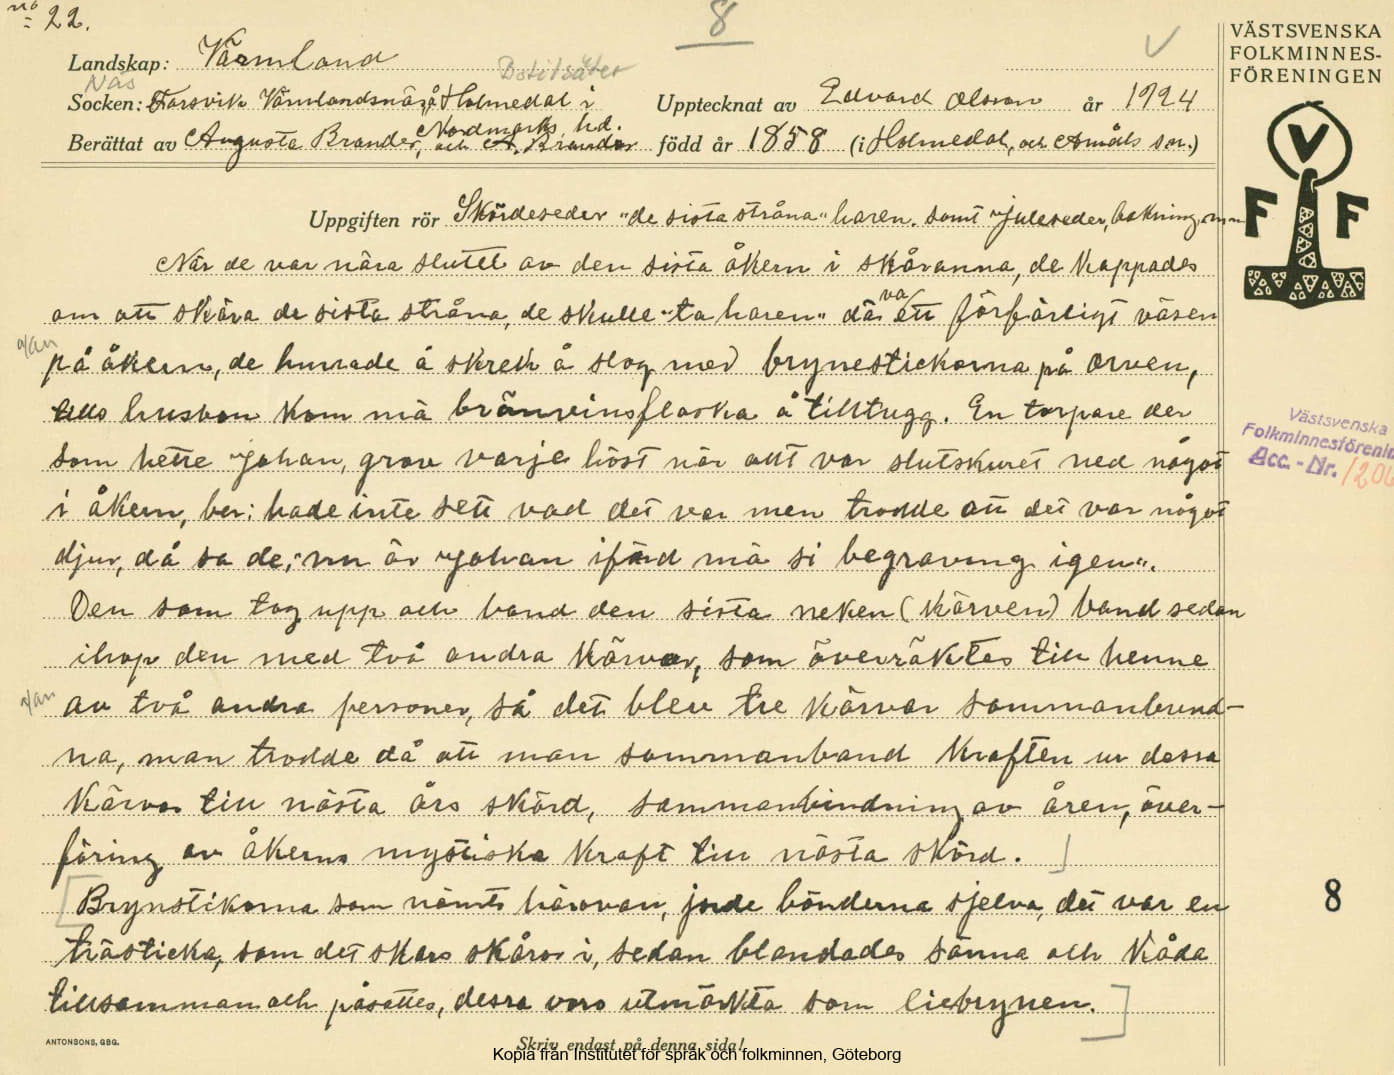 no 22.
8
VÄSTSVENSKA
FOLKMINNES-
FÖRENINGEN
Landskap: Värmland
Näs Botilsäter
Socken: Värmlandsnäs, å Holmedal i
Nordmarks hd.
Upptecknat av Edvard Olsson år 1924
Berättat av Augusta Brander, och A. Brander född år 1858 (i Holmedal, och Åmåls sn.)
V
F F
Uppgiften rör Skördeseder "de sista stråna" haren. samt Juleseder, bakning, m.m
När de var nära slutet av den sista åkern i skåranna, de kappades
om att skära de sista stråna, de skulle "ta haren" dä va ett förfärligt väsen
på åkern, de hurrade å skrek å slog med brynestickorna på orven,
husbon kom mä brännvinsflaska å tilltugg. En torpare der
som hette Johan, grov varje höst när allt var slutskuret ned något
i åkern, ber: hade inte sett vad det var men trodde att det var något
djur, då sa de; "nu är Johan ifärd mä si begraving igen".
Den som tog upp och band den sista neken (kärven) band sedan
ihop den med två andra kärvar, som överräktes till henne
av två andra personer, så det blev tre kärvar sammanbund-
na, man trodde då att man sammanband kraften ur dessa
kärvar till nästa års skörd, sammanbindning av åren, över-
föring av åkerns mystiska kraft till nästa skörd.
Brynstikorna som nämts härovan, jorde bönderna sjelva, det var en
trästicka, som det skars skåror i, sedan blandades sänna och kåda
tillsamman och påsattes, dessa voro utmärkta som liebrynen.
Västsvenska
Folkminnesförenin
Acc. - Nr. 1206
8
ANTONSONS, GBG.
Skriv endast på denna sida!
Kopia från Institutet för språk och folkminnen, Göteborg